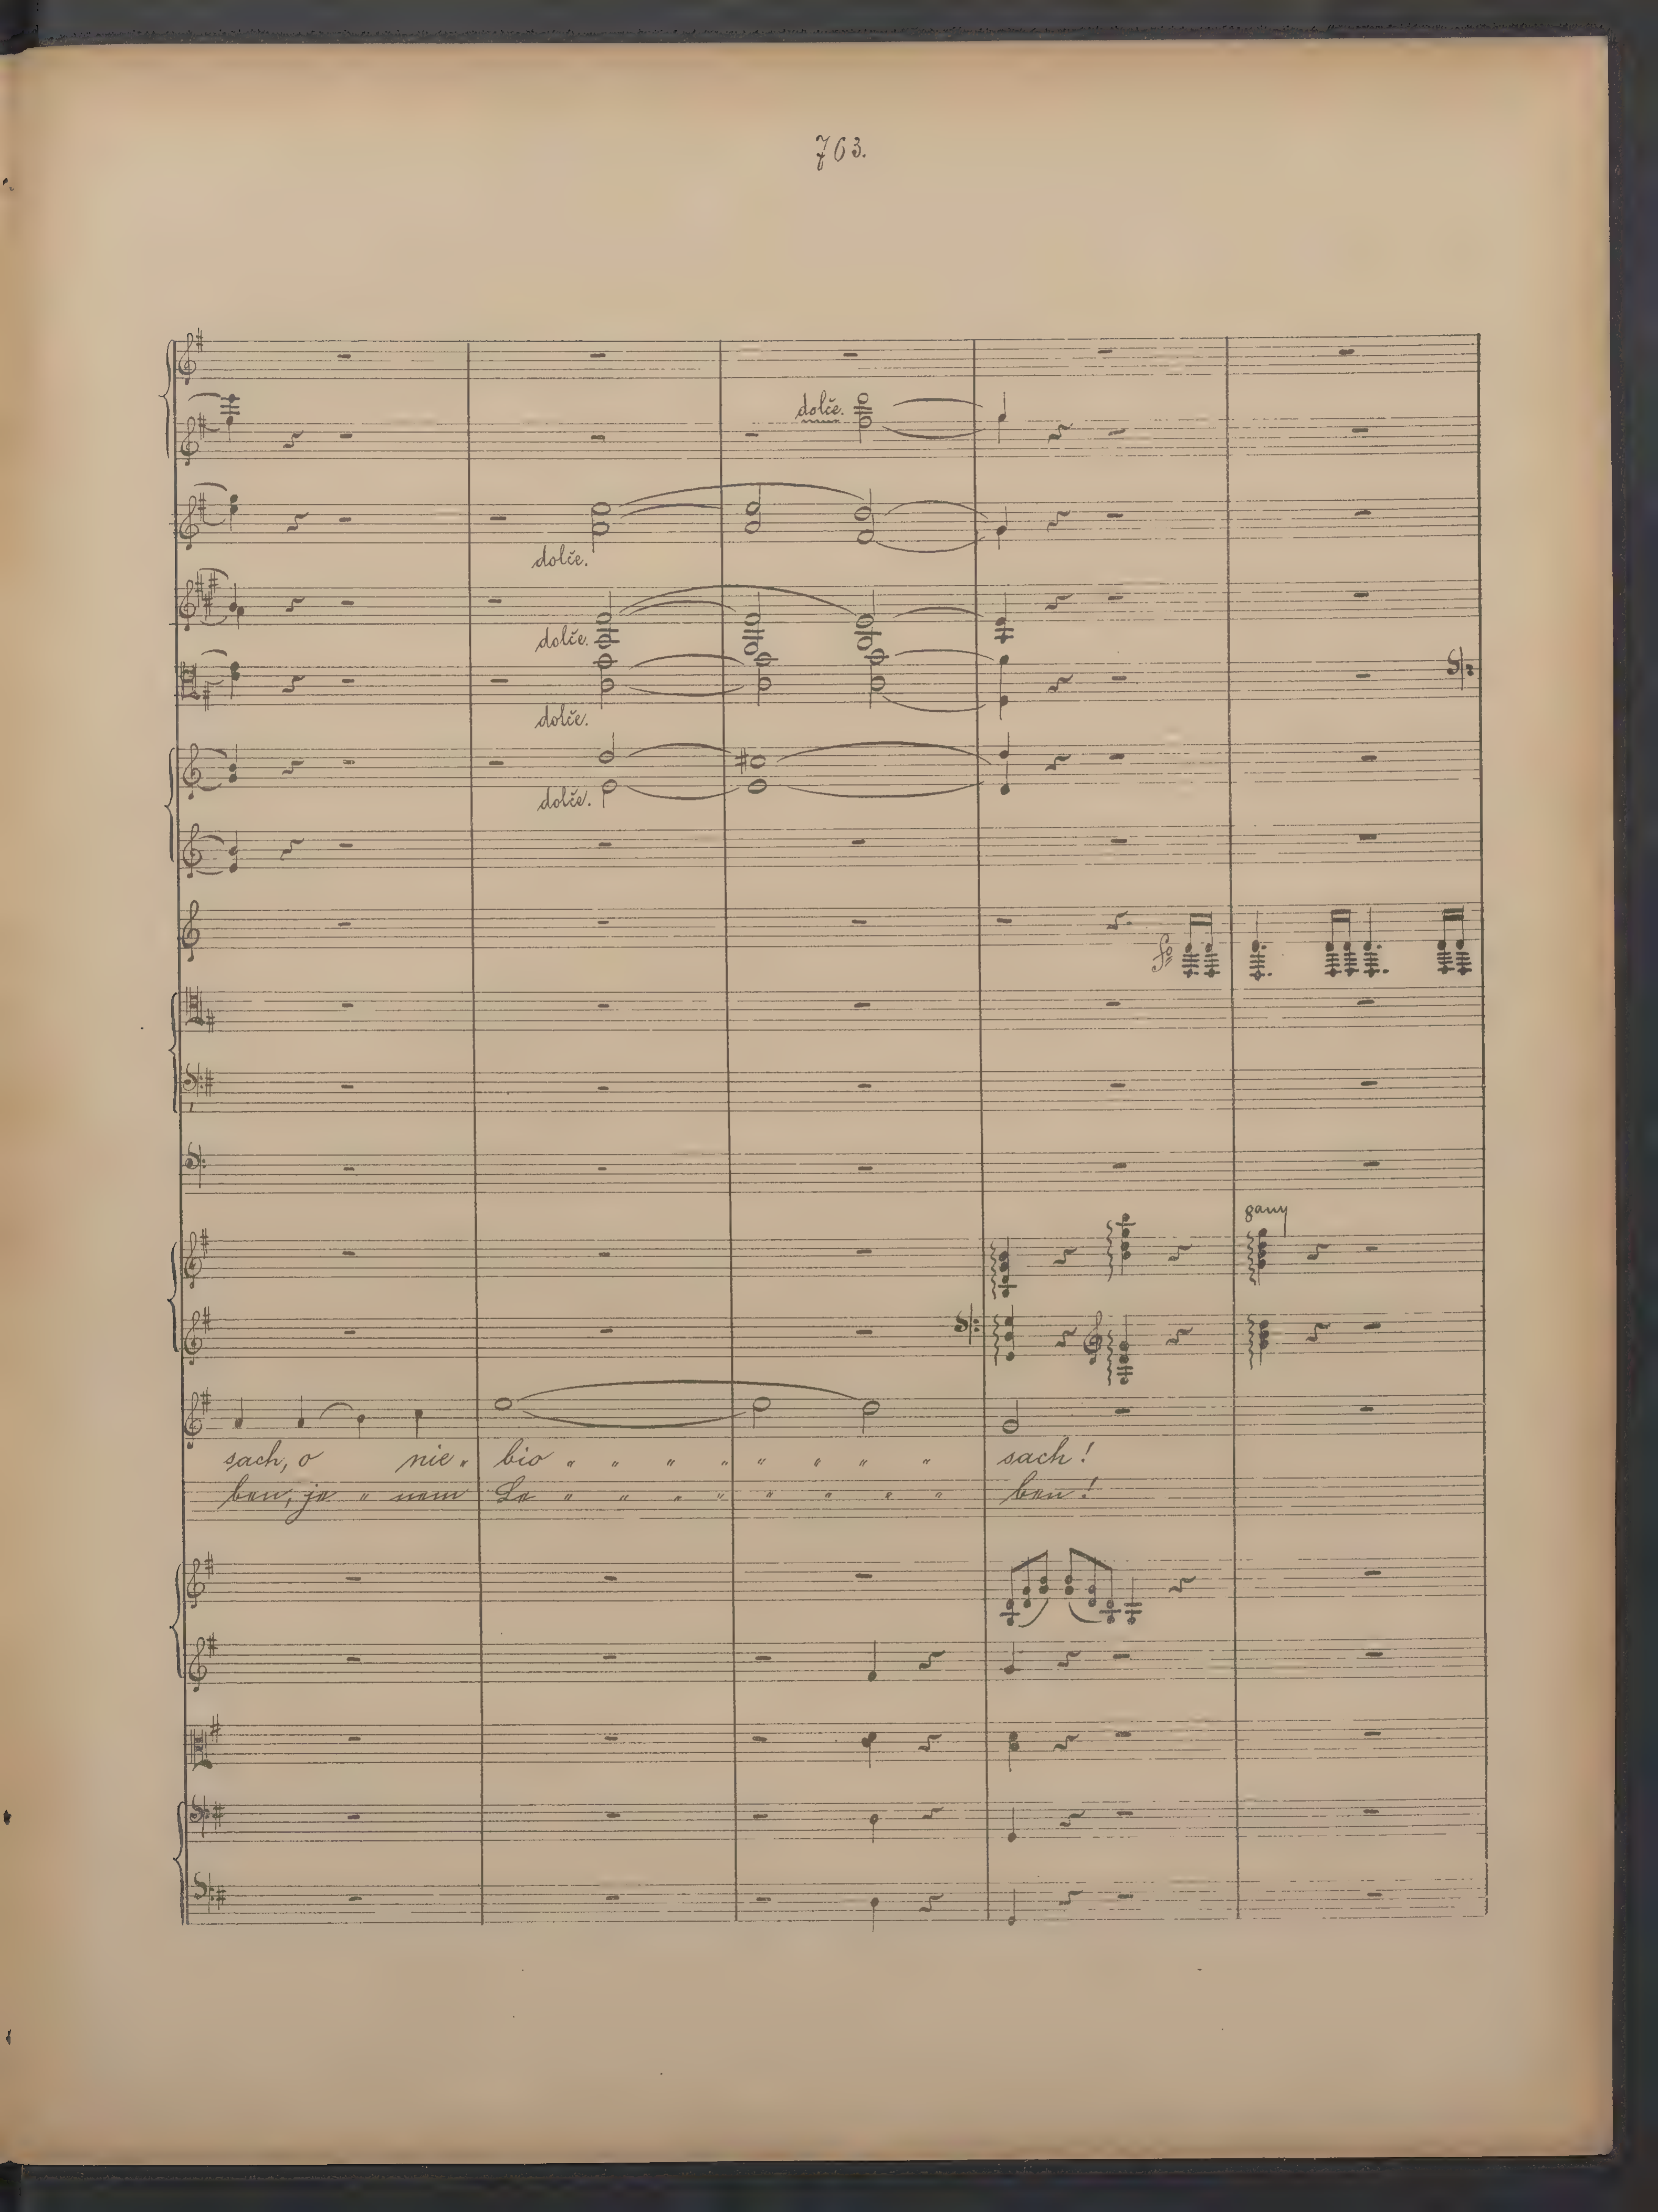 763.
dolče.
dolče.
dolče.
dolče.
dolče.
sach, o nie „ bio „ „ „ „ „ „ „ „ sach!
ben, je „ nem Le „ „ „ „ „ „ „ „ ben!